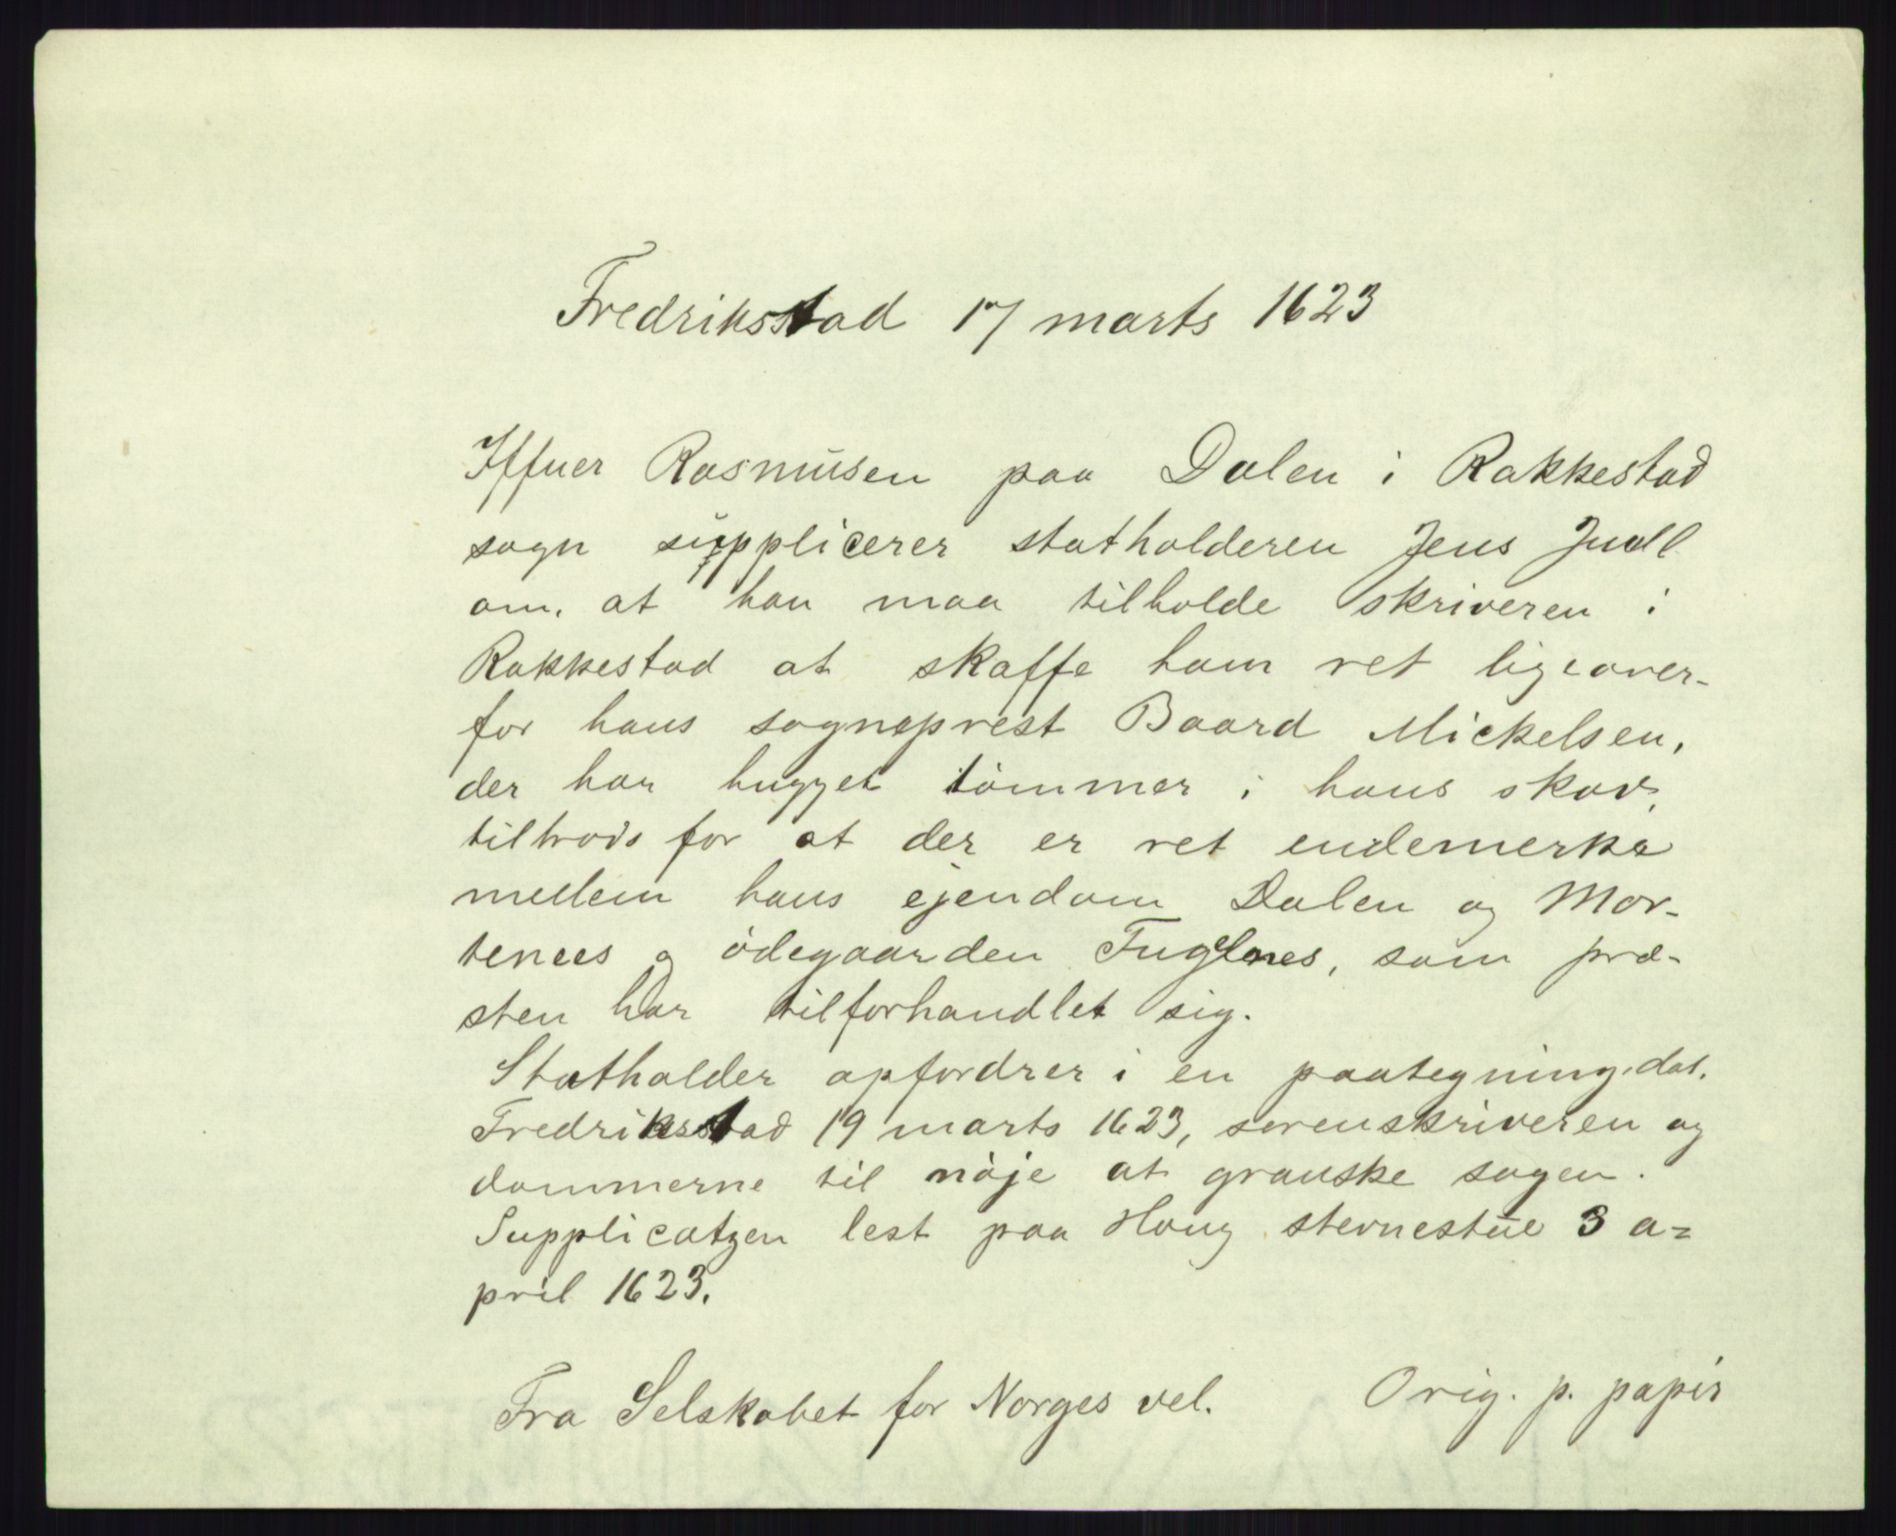 Fredriksstad 17 marts 1623
Iffuer Rasmusen paa Dalen i Rakkestad
sogn supplicerer statholderen Jens Juell
om, at han maa tilholde skriveren i
Rakkestad at skaffe ham ret ligeover-
for hans sogneprest Baard Mickelsen,
der har hugget tömmer i hans skov,
tiltrods for at der er ret endemerke
mellem hans ejendom Dalen og Mor-
tenees o ödegaarden Fuglenes, som præ-
sten har tilforhandlet sig.
Statholder opfordrer i en paategning, dat.
Fredriksstad 19 marts 1623, sorenskriveren og
dommerne til nöje at granske sagen.
Supplicatzen lest paa Houg stevnestue 3 a=
pril 1623.
Fra Selskabet for Norges vel. Orig. p. papir